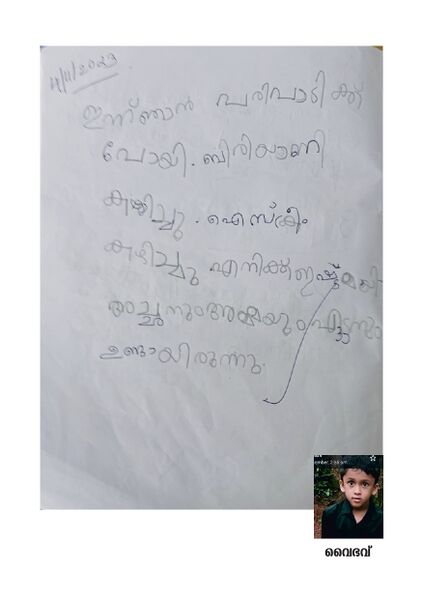 4/11/2023
ഇന്ന് ഞാൻ പരിപാടിക്ക്
പോയി. ബിരിയാണി
കഴിച്ചു. ഐസ്ക്രീം
കഴിച്ചു എനിക്ക് ഇഷ്ടമായി
അച്ഛനും അമ്മയും
ഉണ്ടായിരുന്നു.
വൈഭവ്